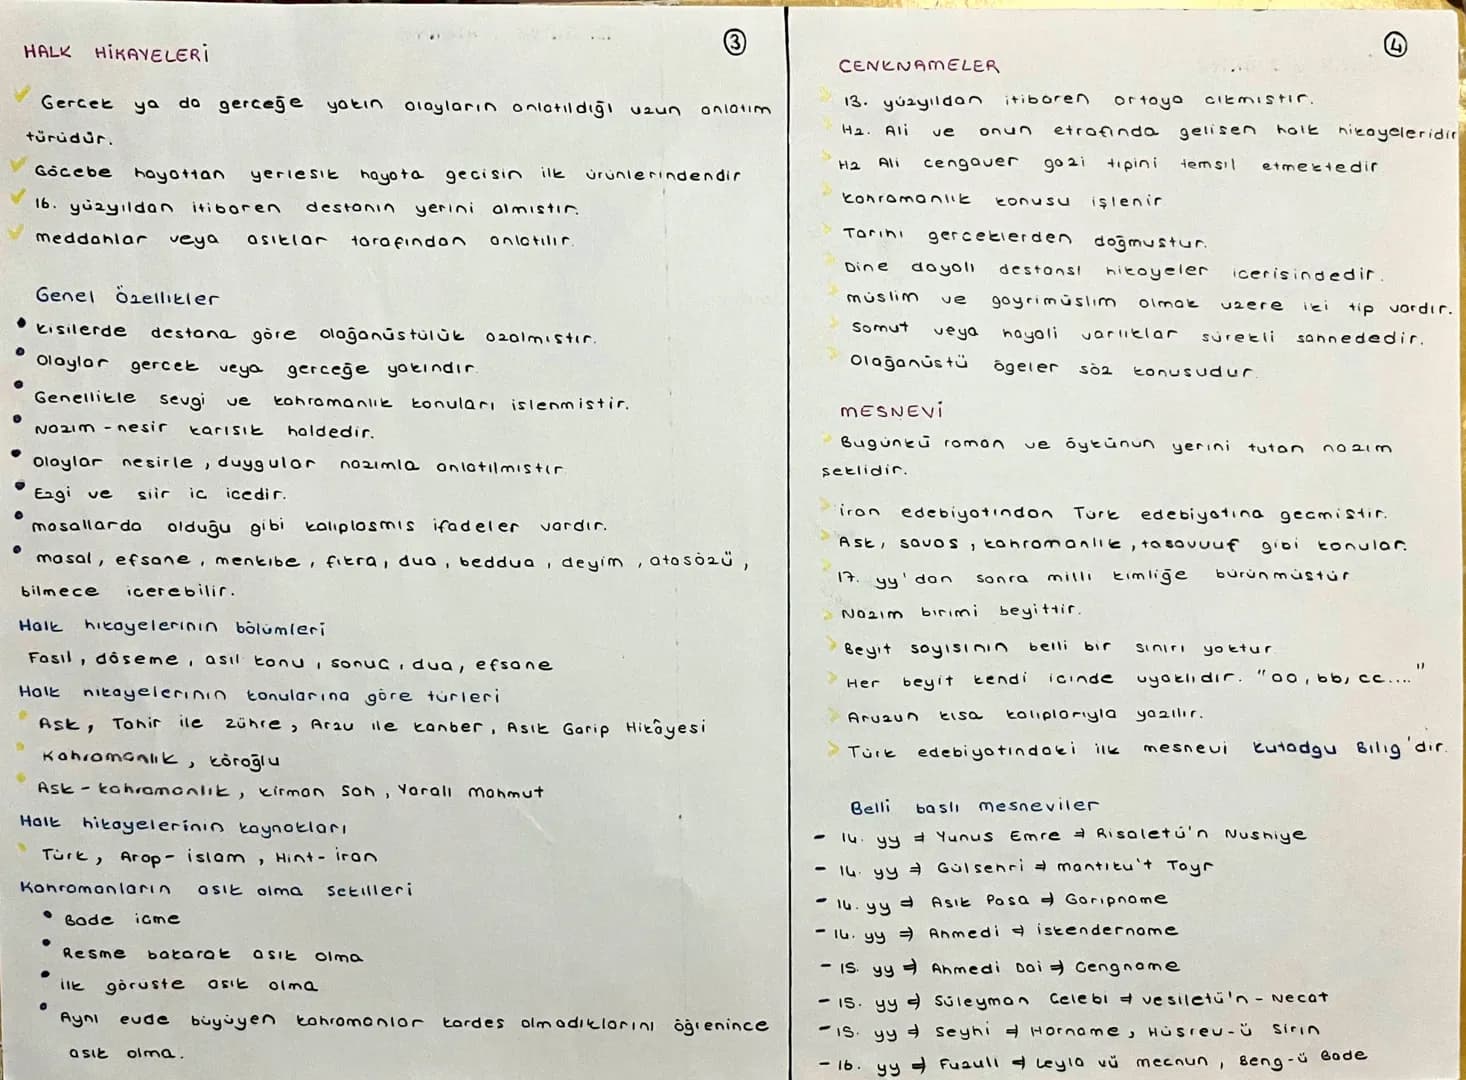 3
HALK HİKAYELERİ
Gercek ya da gerceğe yakın olayların anlatıldığı uzun anlatım
türüdür.
Göcebe hayattan yerlesik hayata gecisin ilk ürünlerindendir
16. yüzyıldan itibaren destanın yerini almıstır.
meddahlar veya asıklar tarafından anlatılır.
Genel Özellikler
kisilerde destana göre olağanüstülük azalmıstır.
Olaylar gercek veya gerceğe yakındır.
Genellikle sevgi ve kahramanlık konuları islenmistir.
Nazım - nesir karısık haldedir.
Olaylar nesirle, duygular nazımla anlatılmıstır
Ezgi ve siir ic icedir.
masallarda olduğu gibi kalıplasmıs ifadeler vardır.
masal, efsane, menkıbe, fıkra, dua, beddua, deyim, atasözü,
bilmece icerebilir.
Halk hikayelerinin bölümleri
Fasıl, döseme, asıl konu, sonuc, dua, efsane
Halk hikayelerinin konularına göre türleri
Ask, Tahir ile Zühre, Arzu ile Kanber, Asık Garip Hikâyesi
Kahramanlık, Köroğlu
Ask - kahramanlık, Kirman Sah, Yaralı Mahmut
Halk hikayelerinin kaynakları
Türk, Arap - islam, Hint - iran
Kahromanların asık olma sekilleri
Bade icme
Resme bakarak asık olma
ilk görüste asık olma
Aynı evde büyüyen kahramanlar kardes olmadıklarını öğrenince
asık olma.
4
CENKNAMELER
13. yüzyıldan itibaren ortaya cıkmıstır.
Hz. Ali ve onun etrafında gelisen halk hikayeleridir
Hz Ali cengaver gazi tipini temsil etmektedir
kahramanlık konusu işlenir
Tarihi gerceklerden doğmustur.
Dine dayalı destansı hikayeler icerisindedir.
müslim ve gayrimüslim olmak uzere iki tip vardır.
Somut veya hayali varlıklar sürekli sahnededir.
Olağanüstü ögeler söz konusudur.
MESNEVİ
Bugünkü roman ve öykünün yerini tutan nazım
seklidir.
iran edebiyatından Türk edebiyatına gecmistir.
Ask, savas, kahramanlık, tasavvuf gibi konular.
17. yy'dan sonra milli kimliğe bürünmüstür
Nazım birimi beyittir.
Beyit sayısının belli bir sınırı yoktur
Her beyit kendi icinde uyaklıdır. "aa, bb, cc...."
Aruzun kısa kalıplarıyla yazılır.
Türk edebiyatındaki ilk mesnevi Kutadgu Bilig'dir.
Belli baslı mesneviler
- 14. yy ⇒ Yunus Emre ⇒ Risaletü'n Nushiye
- 14. yy ⇒ Gülsehri ⇒ mantıku't Tayr
- 14. yy ⇒ Asık Pasa ⇒ Garipname
- 14. yy ⇒ Ahmedi ⇒ iskendername
- 15. yy ⇒ Ahmedi Dai ⇒ Cengname
- 15. yy ⇒ Süleyman Celebi ⇒ vesiletü'n - Necat
- 15. yy ⇒ Seyhi ⇒ Harname, Hüsrev-ü Sirin
- 16. yy ⇒ Fuzuli ⇒ Leyla vü mecnun, Beng-ü Bade